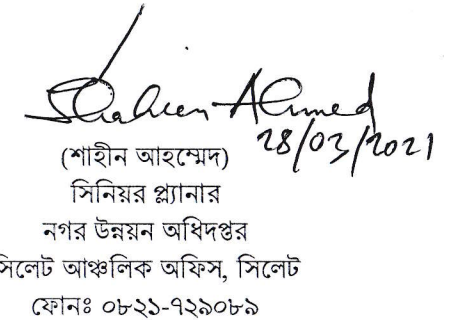 Shaheen Ahmed
28/03/2021
(শাহীন আহম্মেদ)
সিনিয়র প্ল্যানার
নগর উন্নয়ন অধিদপ্তর
সিলেট আঞ্চলিক অফিস, সিলেট
ফোনঃ ০৮২১-৭২৯০৮৯